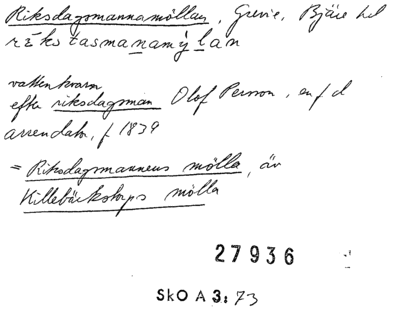 Riksdagsmannamöllan, Grevie, Bjäre hd
rēkstasmanamýlan
vattenkvarn
efter riksdagsman Olof Persson, en f.d
arrendator, f 1839
= Riksdagsmannens mölla, äv
Killebäckstorps mölla
27936
SkO A 3: 73